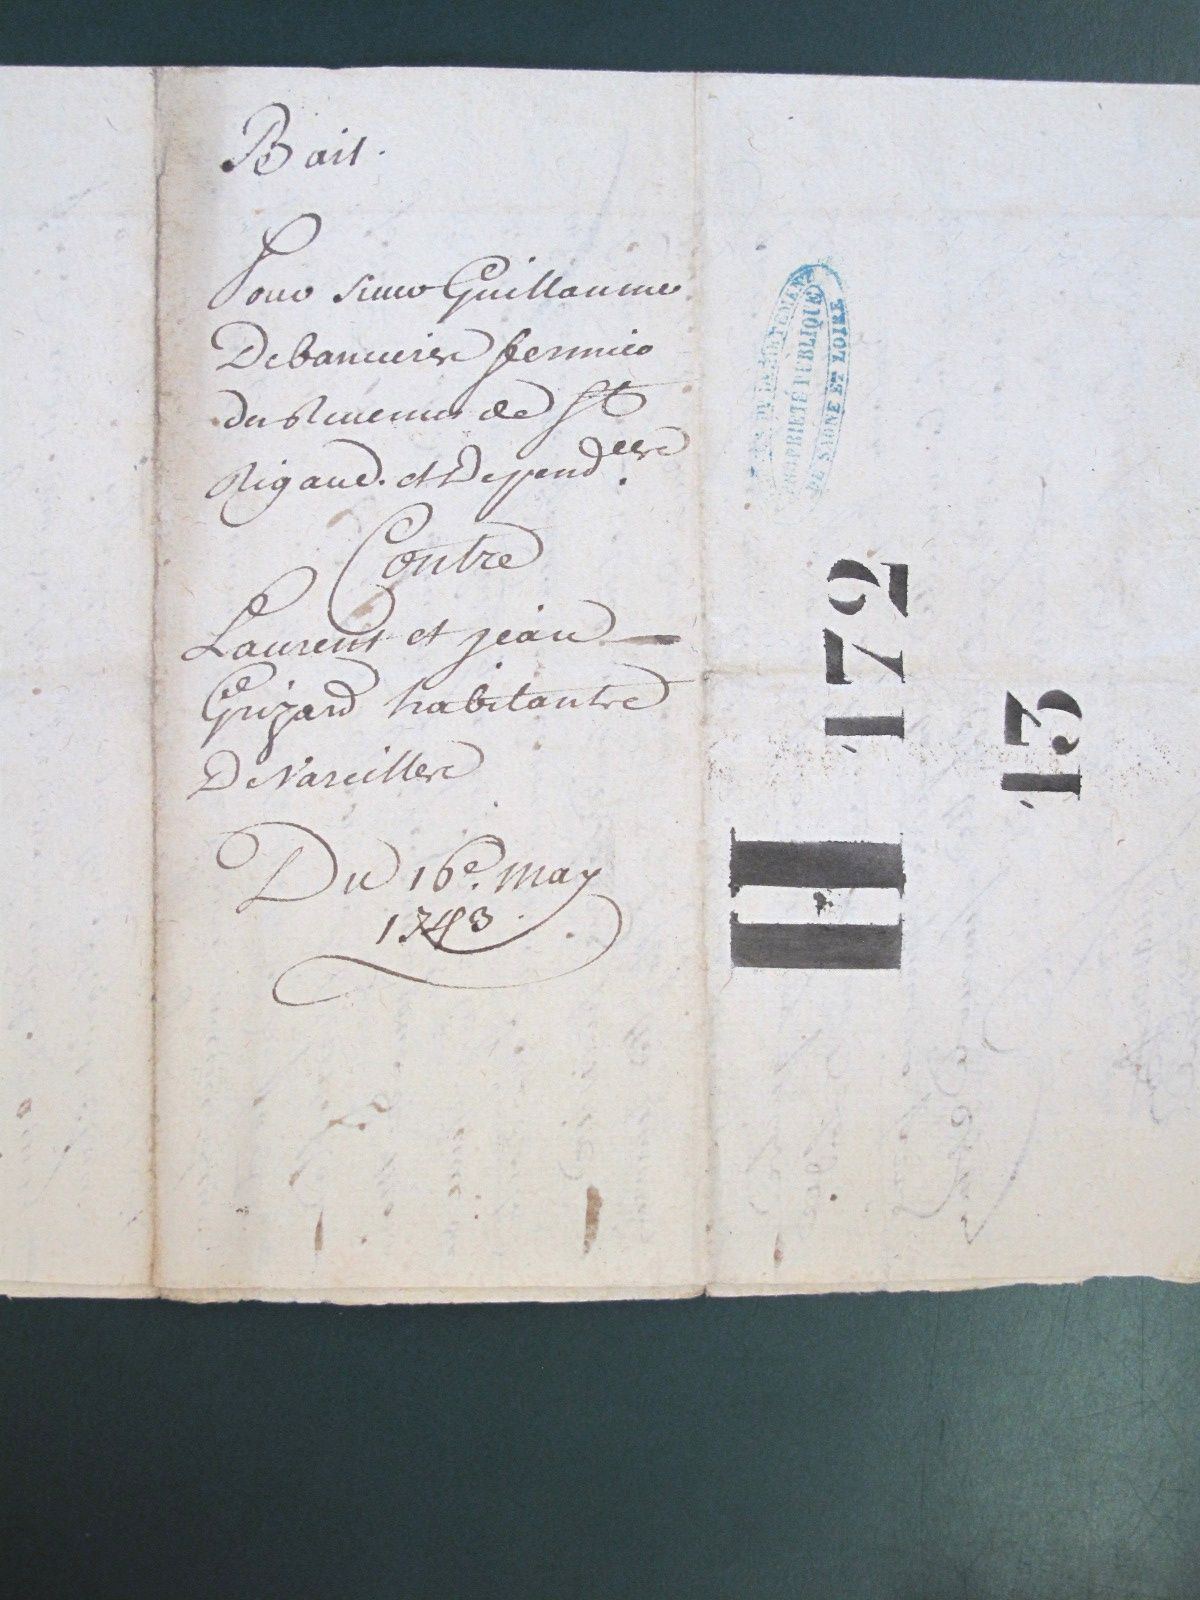 Bail.
Pour sieur Guillaume
Debanuiere fermier
des Revenus de St
Rigaud. et Depend.ces
Contre
Laurent et jean
Grizard habitants
De Vareilles
Du 16e. May
1743.
PROPRIÉTÉ PUBLIQUE
DE SAONE ET LOIRE
H 172
13